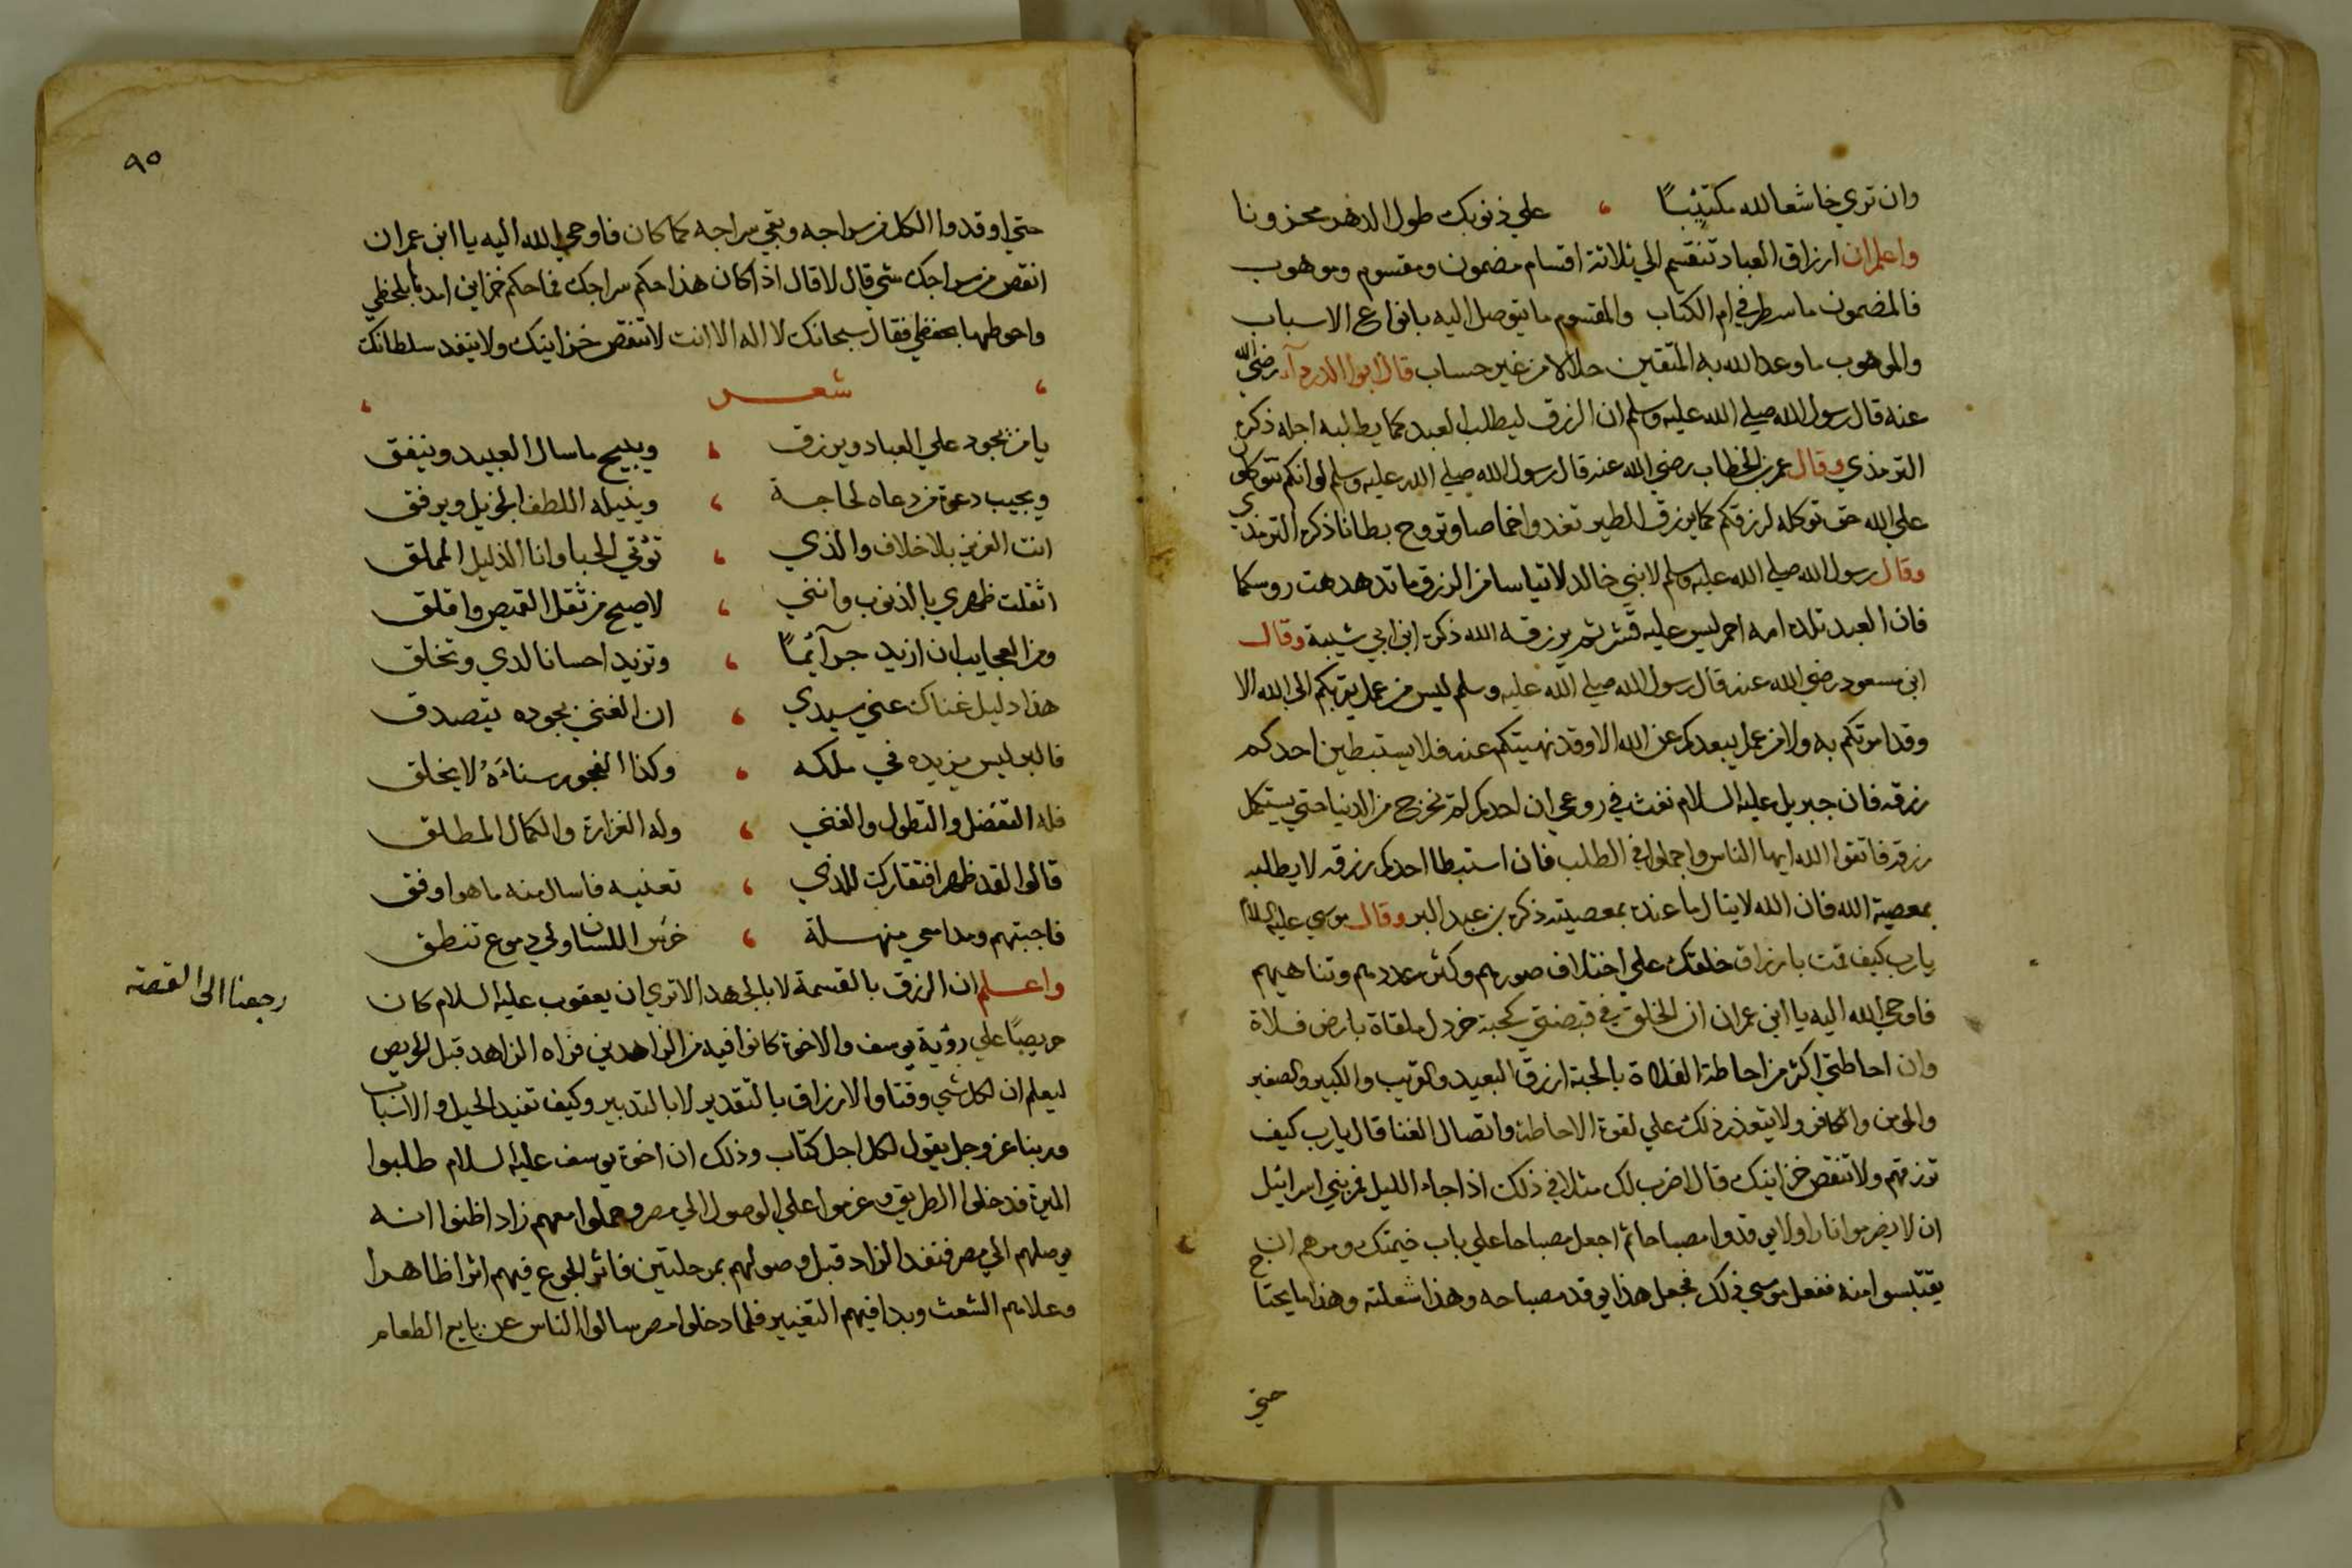 وان تري خاشعا لله مكتئبًا ، علي ذنوبك طول الدهر محزونا
واعلم ان ارزاق العباد تنقسم الي ثلاثة اقسام مضمون ومقسوم وموهوب
فالمضمون ما سطر في ام الكتاب والمقسوم ما يتوصل اليه بانواع الاسباب
والموهوب ما وعد الله به المتقين حلالا من غير حساب قال ابو الدرداء رضي الله
عنه قال رسول الله صلي الله عليه وسلم ان الرزق ليطلب العبد كما يطلبه اجله ذكره
الترمذي وقال عمر بن الخطاب رضي الله عنه قال رسول الله صلي الله عليه وسلم لو انكم تتوكلون
علي الله حق توكله لرزقكم كما يرزق الطير تغدوا خماصا وتروح بطانا ذكره الترمذي
وقال رسول الله صلي الله عليه وسلم لابني خالد لا تياسا من الرزق ما تدهدهت روسكما
فان العبد تلده امه احمر ليس عليه قشر ثم يرزقه الله ذكره ابن ابي شيبة وقال
ابن مسعود رضي الله عنه قال رسول الله صلي الله عليه وسلم ليس من عمل يقربكم الى الله الا
وقد امرتكم به ولا من عمل يبعدكم عن الله الا وقد نهيتكم عنه فلا يستبطين احدكم
رزقه فان جبريل عليه السلام نفث في روعي ان احدكم لم يخرج من الدنيا حتي يستكمل
رزقه فاتقوا الله ايها الناس واجملوا في الطلب فان استبطا احدكم رزقه لا يطلبه
بمعصية الله فان الله لا ينال ما عنده بمعصيته ذكره بن عبد البر وقال موسي عليه السلام
يارب كيف قمت بارزاق خلقك علي اختلاف صورهم وكثر عددهم وتناهيهم
فاوحي الله اليه يا ابن عمران ان الخلق في قبضتي كحبة خردل ملقاة بارض فلاة
وان احاطتي اكثر من احاطة الفلاة بالحبة ارزق البعيد والقريب والكبير والصغير
والمومن والكافر ولا يتعذر ذلك علي لقوة الاحاطة واتصال الغنا قال يارب كيف
ترزقهم ولا تنقص خزاينك قال اضرب لك مثلا في ذلك اذا جاء الليل فمر بني اسرائيل
ان لا يضرموا نارا ولا يوقدوا مصباحا ثم اجعل مصباحا علي باب خيمتك ومرهم ان
يقتبسوا منه ففعل موسي ذلك فجعل هذا يوقد مصباحه وهذا شعلته وهذا ما يحتاج
حتي
٩٥
حتي اوقدوا الكل من سراجه وبقي سراجه كما كان فاوحي الله اليه يا ابن عمران
انقص من سراجك شي قال لا قال اذا كان هذا حكم سراجك فما حكم خزاين امدها بلحظي
واحوطها بحفظي فقال سبحانك لا اله الا انت لا تنقص خزاينك ولا ينفد سلطانك
، شعر ،
يا من يجود علي العباد ويرزق ، ويبيح ما سال العبيد وينفق
ويجيب دعوة من دعاه لحاجة ، وينيله اللطف الجزيل ويرفق
انت العزيز بلا خلاف والذي ، تؤتي الحبا وانا الذليل المملق
اثقلت ظهري بالذنوب وانني ، لاصيح من ثقل القميص واقلق
ومن العجايب ان ازيد جرآئمًا ، وتزيد احسانا لدي وتخلق
هذا دليل غناك عني سيدي ، ان الغني بجوده يتصدق
فالبر ليس يزيده في ملكه ، وكذا الفجور سناءَهُ لا يخلق
فله التفضل والتطول والغني ، وله الغزارة والكمال المطلق
قالوا لقد ظهر افتقارك للذي ، تعنيه فاسال منه ما هو اوفق
فاجبتهم ومدامعي منهلة ، خرَس اللسان ولي دموع تنطق
واعلم ان الرزق بالقسمة لا بالجهد الا تري ان يعقوب عليه السلام كان
حريصًا علي رؤية يوسف والاخوة كانوا فيه من الزاهدين فراه الزاهد قبل الحريص
ليعلم ان لكل شي وقتا والارزاق بالتقدير لا بالتدبير وكيف تفيد الحيل والاسباب
وربنا عز وجل يقول لكل اجل كتاب وذلك ان اخوة يوسف عليه السلام طلبوا
الميرة فدخلوا الطريق وعزموا علي الوصول الي مصر وحملوا معهم زادا ظنوا انه
يوصلهم الي مصر فنفد الزاد قبل وصولهم بمرحلتين فاثر الجوع فيهم اثرا ظاهرا
وعلاهم الشعث وبدا فيهم التغيير فلما دخلوا مصر سالوا الناس عن بايع الطعام
رجعنا الى القصة